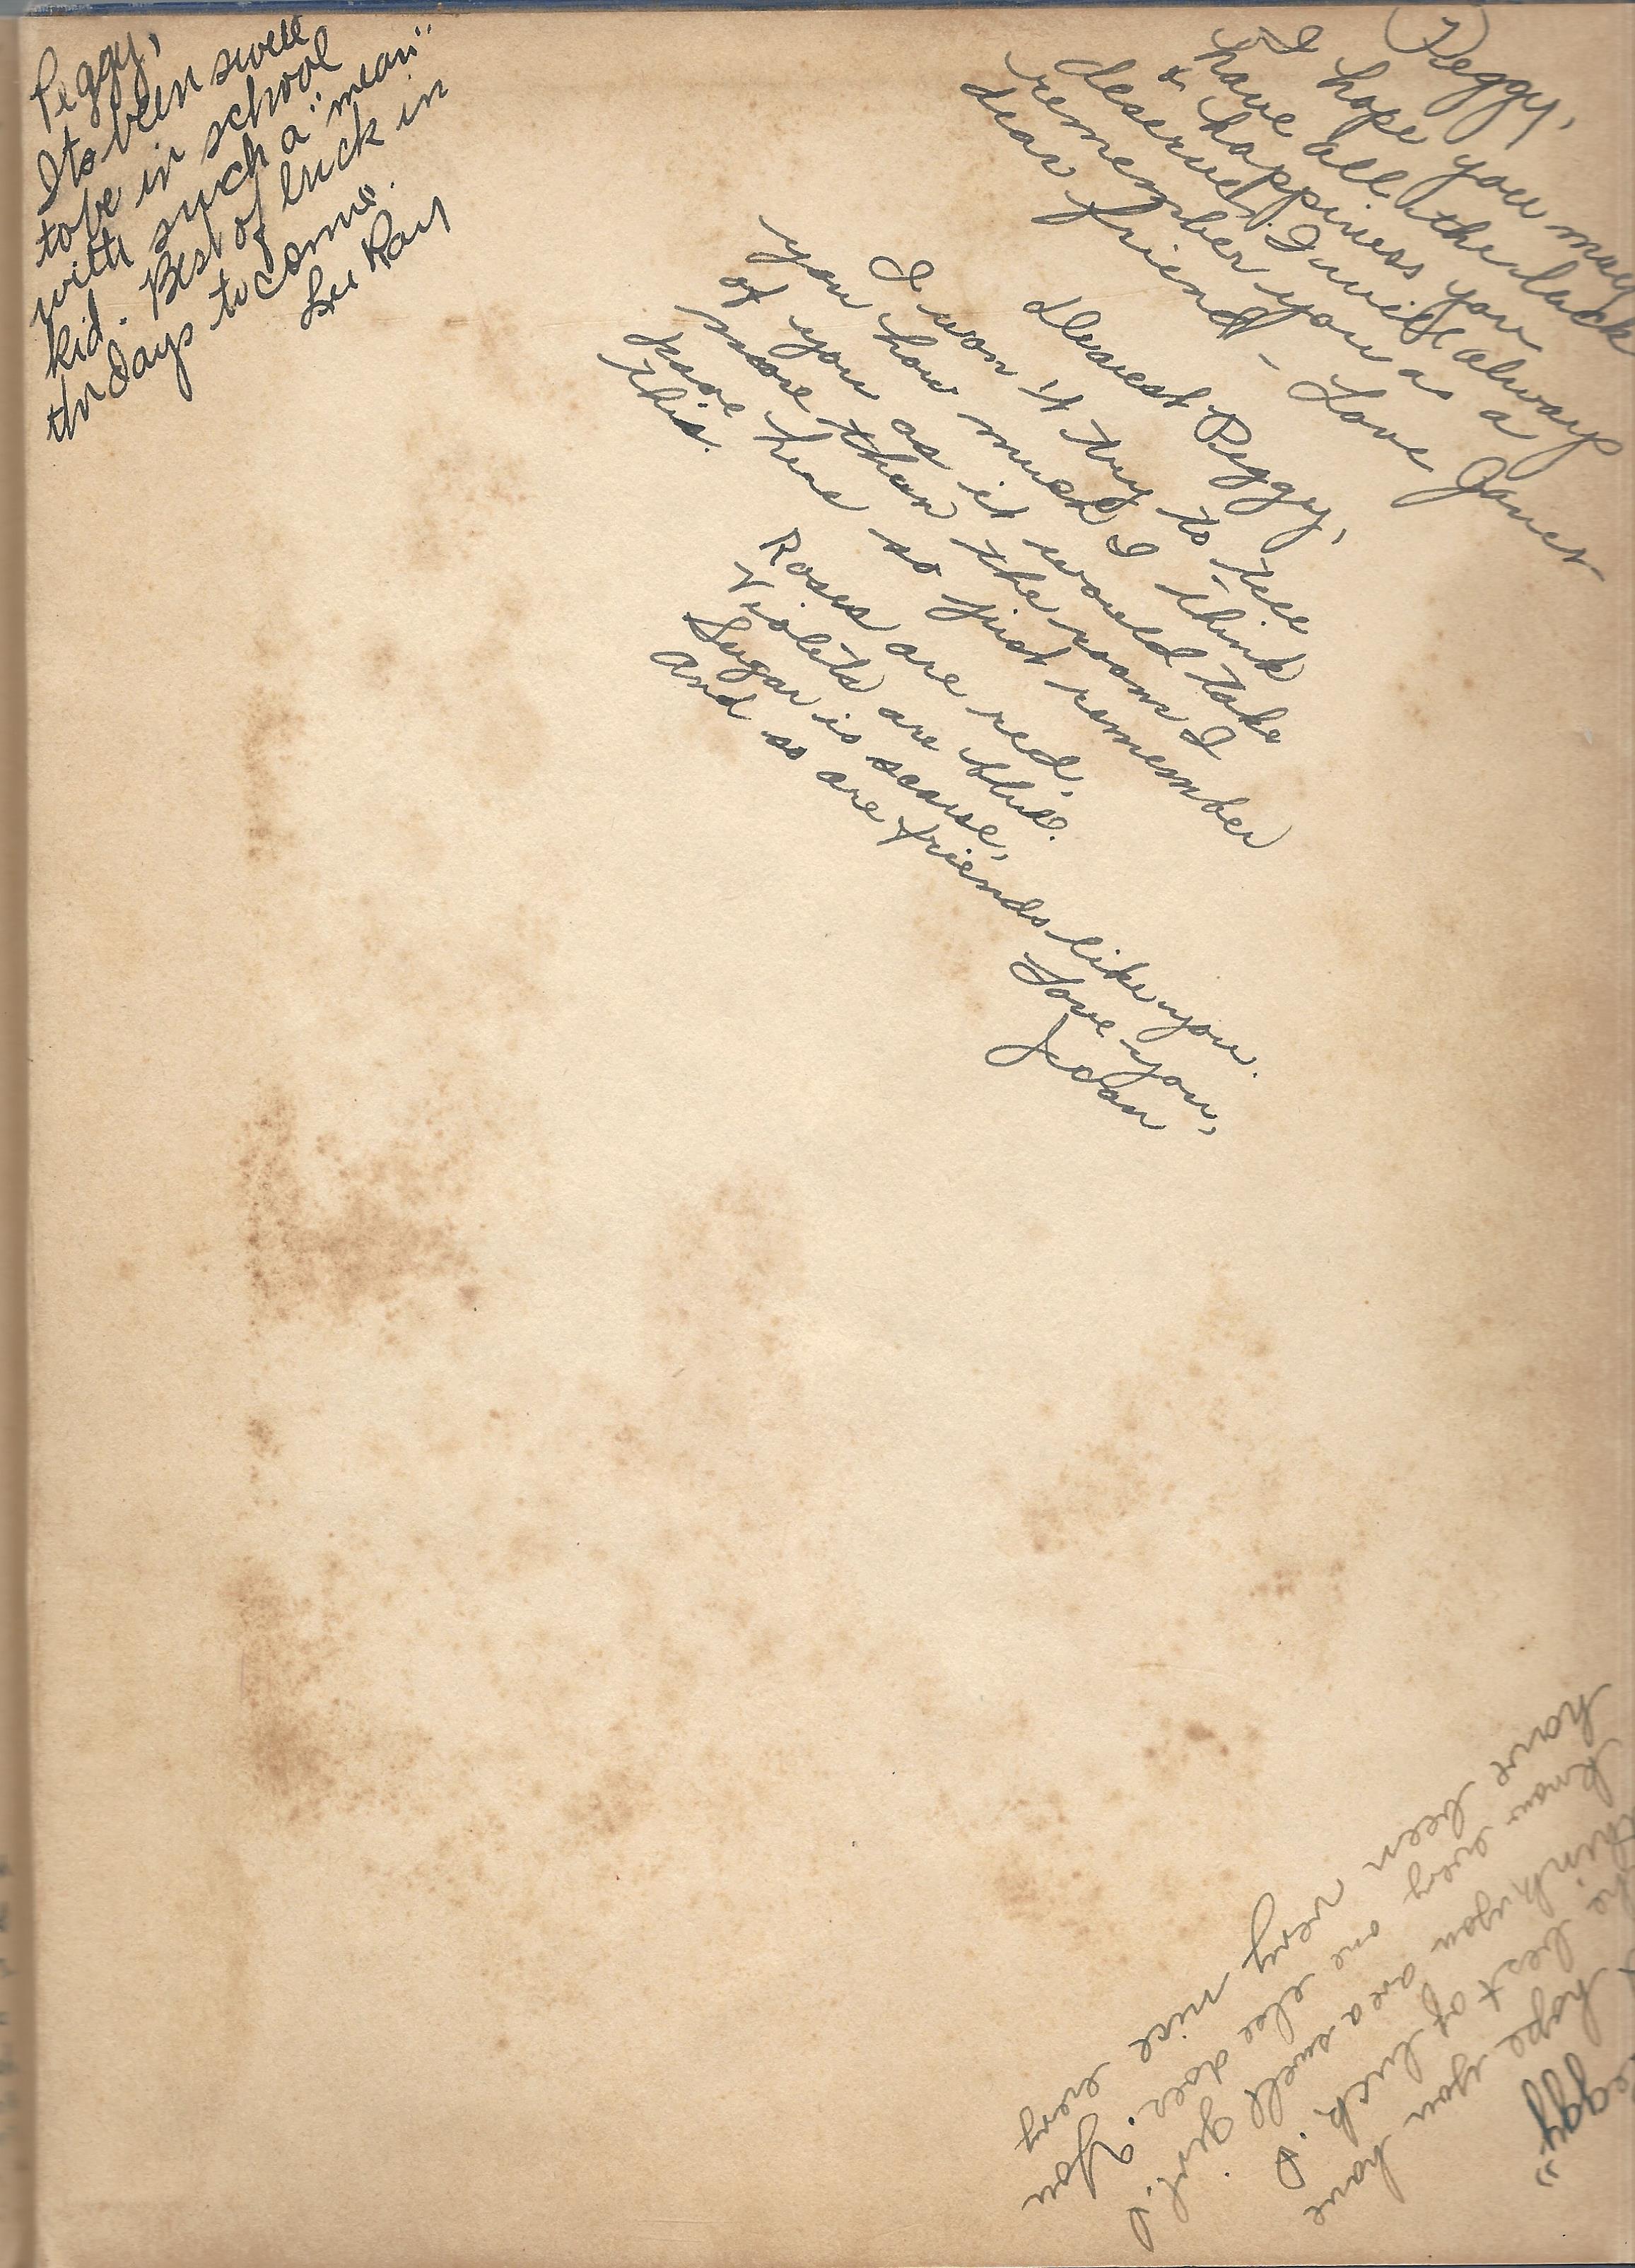 Peggy,
Its been swell
to be in school
with such a "mean"
kid. Best of luck in
the days to come.
Lee Ray
Peggy,
I hope you may
have all the luck
& happiness you
deserve. I will always
remember you as a
dear friend - Love Janet
Dearest Peggy,
I won't try to tell
you how much I think
of you as it would take
more than the room I
have here so just remember
this.
Roses are red,
Violets are blue.
Sugar is scarse,
And so are friends like you.
Love you,
"Peggy"
I hope you have
the best of luck. I
think you are a swell girl. I
know every one else does. You
have been very nice every